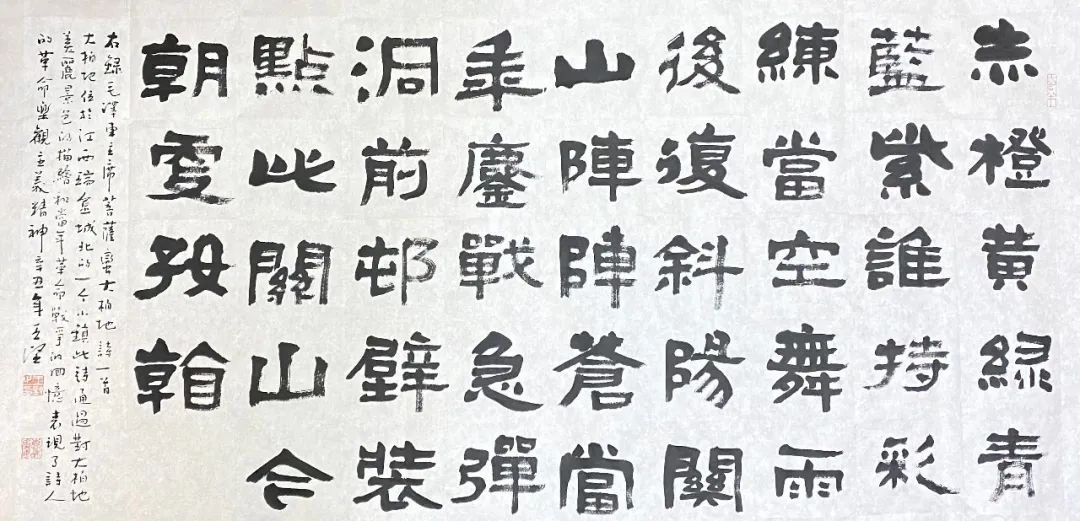 赤橙黃緑青
藍紫誰持彩
練當空舞雨
後復斜陽關
山陣陣蒼當
年鏖戰急彈
洞前邨壁裝
點此關山今
朝更好看
右録毛澤東主席菩薩蠻大柏地詩一首
大柏地位於江西瑞金城北的一个小鎮此詩通過對大柏地
美麗景色的描繪和當年革命戰爭的回憶表現了詩人
的革命樂觀主義精神辛丑年